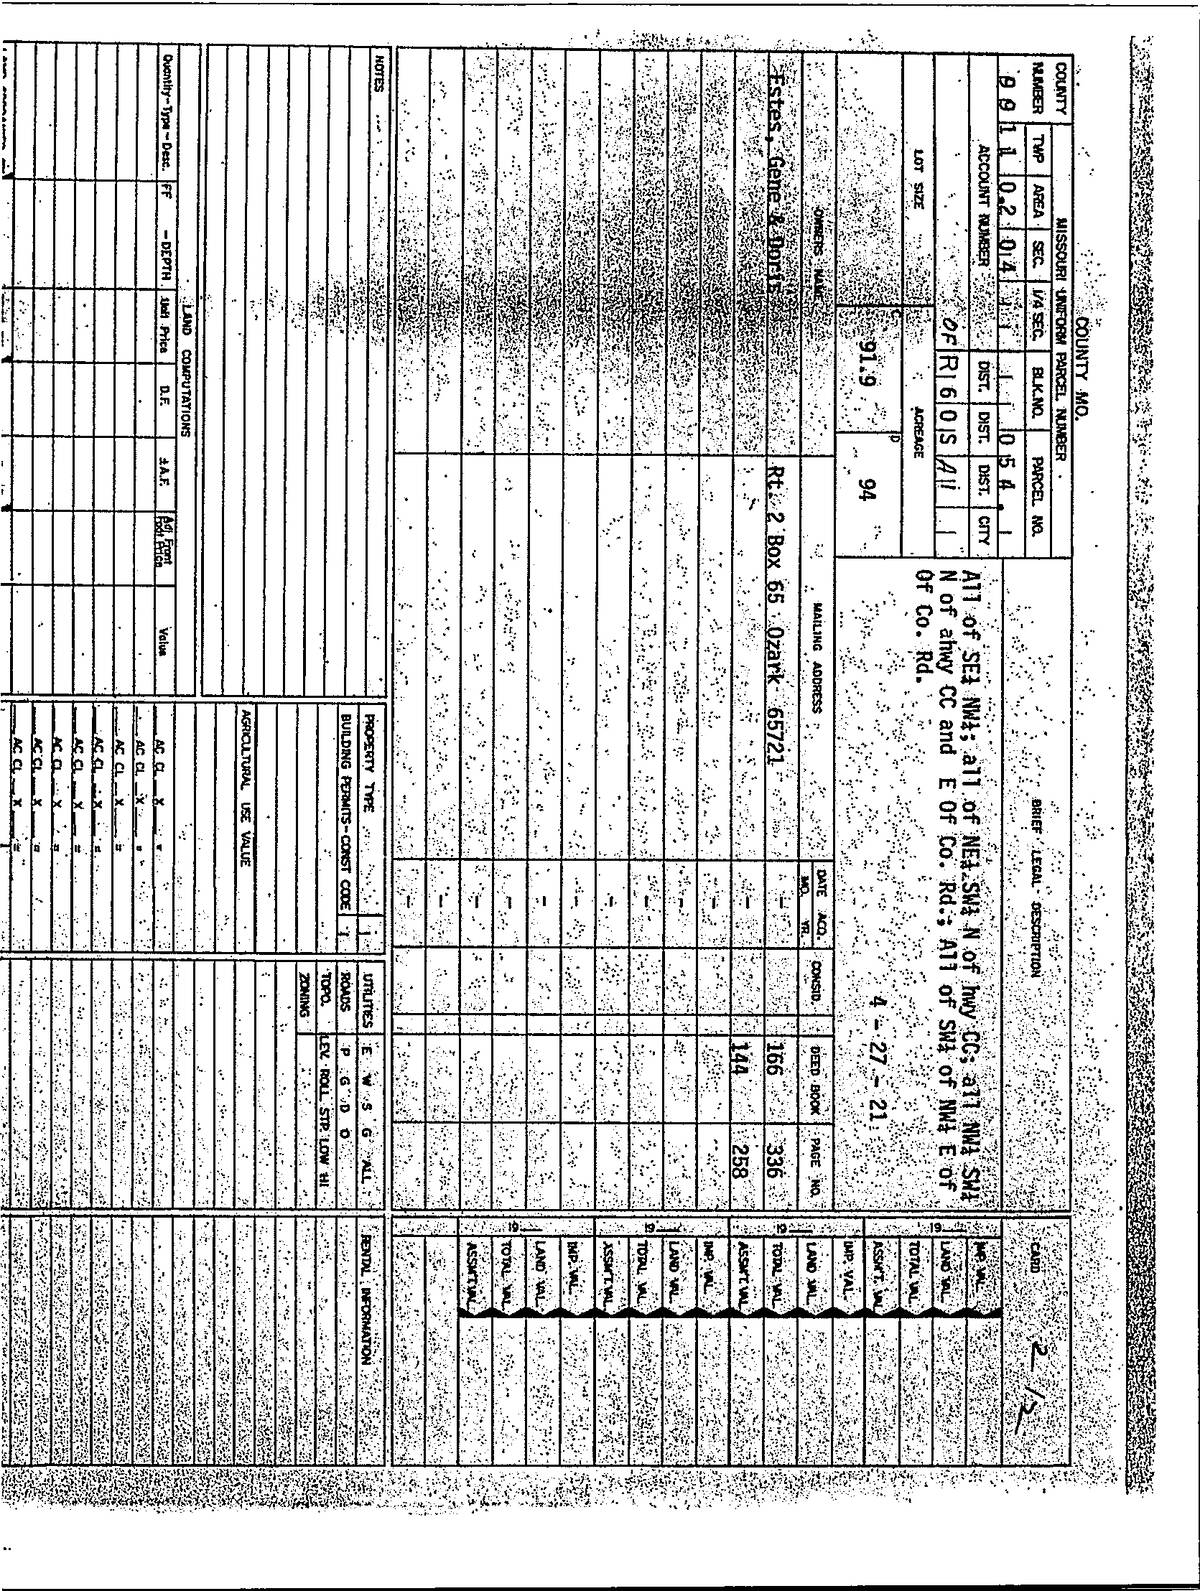 COUNTY MO.
MISSOURI UNIFORM PARCEL NUMBER
COUNTY NUMBER TWP AREA SEC. 1/4 SEC. BLK.NO. PARCEL NO.
0 0 1 1 0.2 0 4 0 5 4.
ACCOUNT NUMBER DIST. DIST. DIST. CITY
OF R 6 0 S A
LOT SIZE ACREAGE
C 91.9 D 94
BRIEF LEGAL DESCRIPTION
All of SE¼ NW¼; all of NE¼ SW¼ N of hwy CC; all NW¼ SW¼
N of ahwy CC and E Of Co. Rd.; All of SW¼ of NW¼ E of
Of Co. Rd.
4 - 27 - 21
CARD 2/2
OWNERS NAME MAILING ADDRESS DATE ACQ. MO. YR. CONSID. DEED BOOK PAGE NO.
Estes, Gene & Doris Rt. 2 Box 65 Ozark 65721 166 336
144 258
19
IMP. VAL.
LAND VAL.
TOTAL VAL.
ASSM'T. VAL.
19
IMP. VAL.
LAND VAL.
TOTAL VAL.
ASSM'T. VAL.
19
IMP. VAL.
LAND VAL.
TOTAL VAL.
ASSM'T. VAL.
19
IMP. VAL.
LAND VAL.
TOTAL VAL.
ASSM'T. VAL.
NOTES
PROPERTY TYPE
BUILDING PERMITS-CONST CODE
UTILITIES E W S G ALL
ROADS P G D O
TOPO. LEV. ROLL STP. LOW HI
ZONING
RENTAL INFORMATION
AGRICULTURAL USE VALUE
LAND COMPUTATIONS
Quantity-Type-Desc. FF - DEPTH Unit Price D.F. ± A.F. Adj. Front Foot Price Value
AC CL X =
AC CL X =
AC CL X =
AC CL X =
AC CL X =
AC CL X =
AC CL X =
AC CL X =